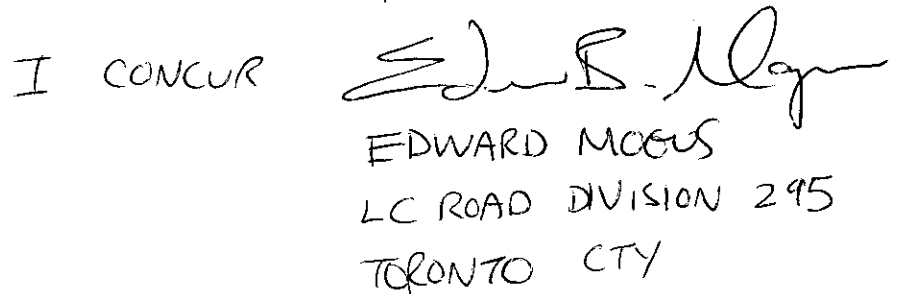 I CONCUR Edw B. Mogus
EDWARD MOGUS
LC ROAD DIVISION 295
TORONTO CTY